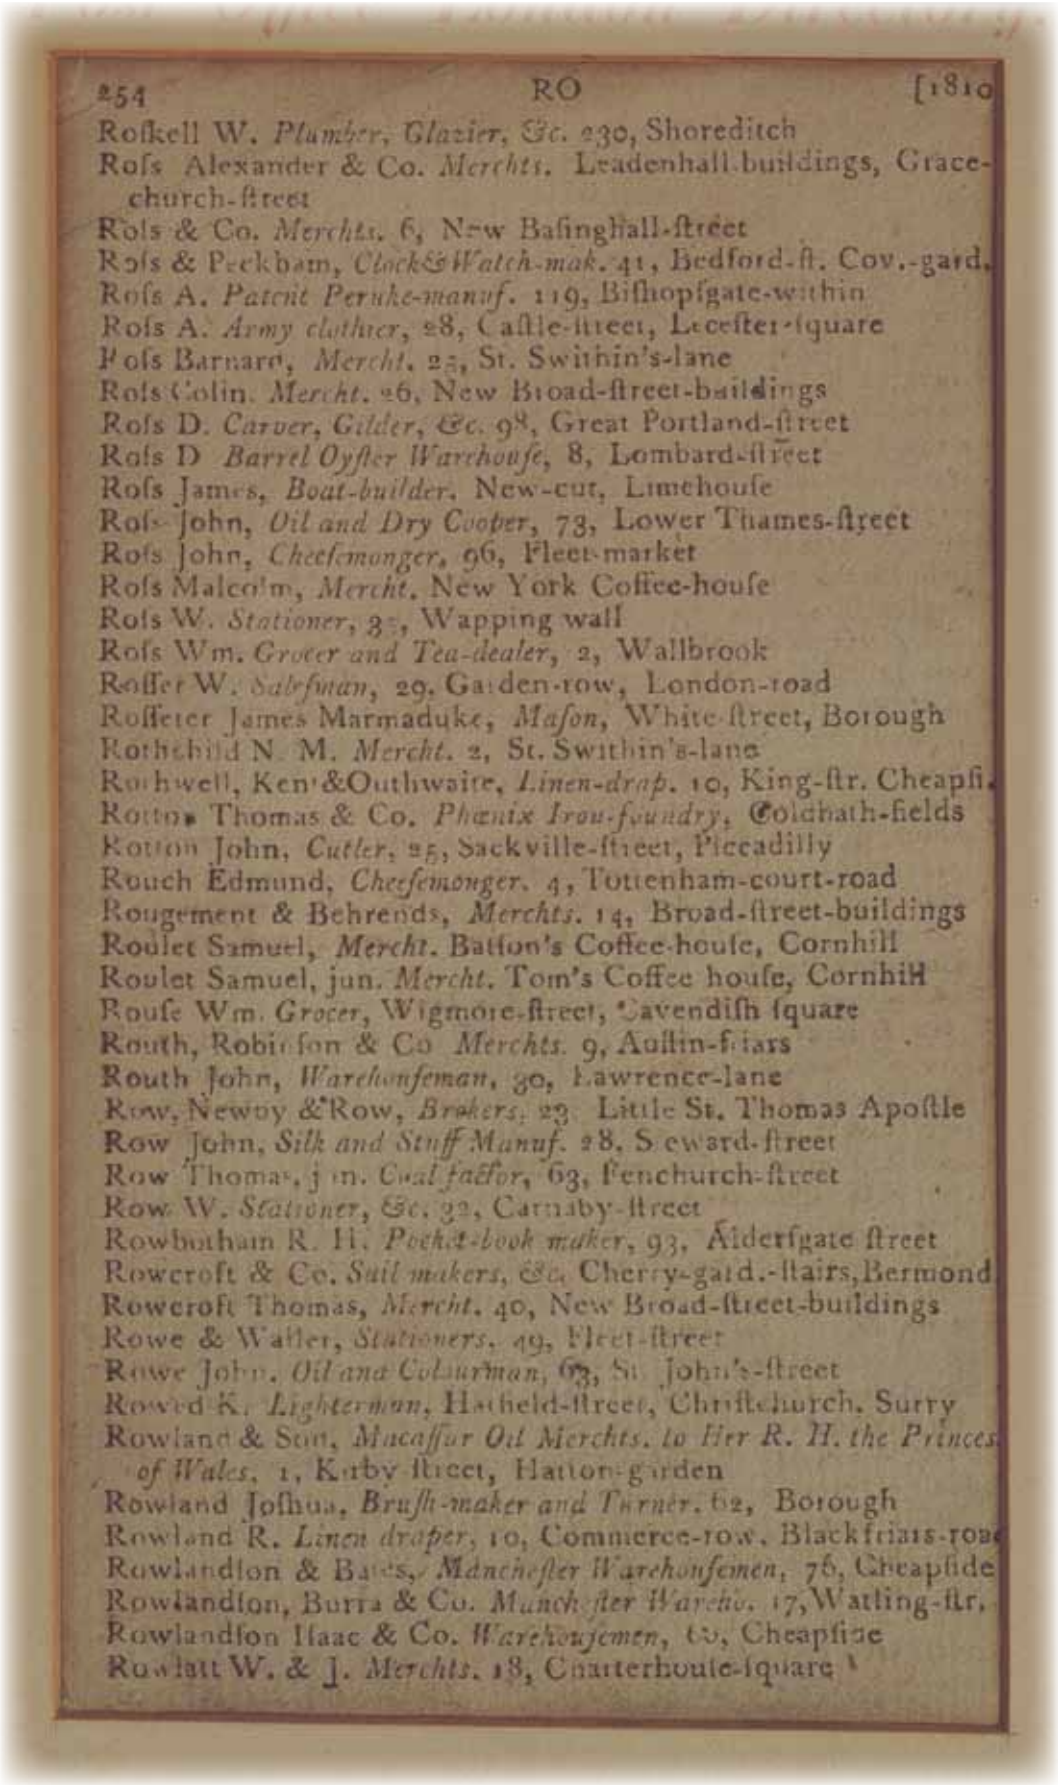 Post Office London Directory.
254 RO [1810
Roſkell W. Plumber, Glazier, &c. 230, Shoreditch
Roſs Alexander & Co. Merchts. Leadenhall-buildings, Grace-
church-ſtreet
Roſs & Co. Merchts. 6, New Baſinghall-ſtreet
Roſs & Peckham, Clock & Watch-mak. 41, Bedford-ſt. Cov.-gard.
Roſs A. Patent Peruke-manuf. 119, Biſhopſgate-within
Roſs A. Army clothier, 28, Caſtle-ſtreet, Leceſter-ſquare
Roſs Barnard, Mercht. 25, St. Swithin's-lane
Roſs Colin. Mercht. 26, New Broad-ſtreet-buildings
Roſs D. Carver, Gilder, &c. 98, Great Portland-ſtreet
Roſs D Barrel Oyſter Warehouſe, 8, Lombard-ſtreet
Roſs James, Boat-builder. New-cut, Limehouſe
Roſs John, Oil and Dry Cooper, 73, Lower Thames-ſtreet
Roſs John, Cheeſemonger, 96, Fleet-market
Roſs Malcolm, Mercht. New York Coffee-houſe
Roſs W. Stationer, Wapping wall
Roſs Wm. Grocer and Tea-dealer, 2, Wallbrook
Roſſer W. Saleſman, 29, Garden-row, London-road
Roſſeter James Marmaduke, Maſon, White-ſtreet, Borough
Rothchild N. M. Mercht. 2, St. Swithin's-lane
Rothwell, Kent & Outhwaite, Linen-drap. 10, King-ſtr. Cheapſi.
Rotton Thomas & Co. Phœnix Iron-foundry, Coldbath-fields
Rotton John, Cutler, 25, Sackville-ſtreet, Piccadilly
Rouch Edmund, Cheeſemonger. 4, Tottenham-court-road
Rougement & Behrends, Merchts. 14, Broad-ſtreet-buildings
Roulet Samuel, Mercht. Batſon's Coffee-houſe, Cornhill
Roulet Samuel, jun. Mercht. Tom's Coffee houſe, Cornhill
Rouſe Wm. Grocer, Wigmore-ſtreet, Cavendiſh ſquare
Routh, Robinſon & Co Merchts. 9, Auſtin-friars
Routh John, Warehouſeman, 30, Lawrence-lane
Row, Newby & Row, Brokers, 23, Little St. Thomas Apoſtle
Row John, Silk and Stuff Manuf. 28, Steward-ſtreet
Row Thomas, jun. Coal factor, 63, Fenchurch-ſtreet
Row W. Stationer, &c. 32, Carnaby-ſtreet
Rowbotham R. H. Pocket-book maker, 93, Alderſgate ſtreet
Rowcroft & Co. Sail makers, &c. Cherry-gard.-ſtairs, Bermond
Rowcroft Thomas, Mercht. 40, New Broad-ſtreet-buildings
Rowe & Waller, Stationers. 49, Fleet-ſtreet
Rowe John, Oil and Colourman, 63, St. John's-ſtreet
Rowed K. Lighterman, Hatfield-ſtreet, Chriſtchurch, Surry
Rowland & Son, Macaſſar Oil Merchts. to Her R. H. the Princes
of Wales, 1, Kirby ſtreet, Hatton-garden
Rowland Joſhua, Bruſh-maker and Turner. 62, Borough
Rowland R. Linen draper, 10, Commerce-row, Blackfriars-road
Rowlandſon & Bates, Mancheſter Warehouſemen, 76, Cheapſide
Rowlandſon, Burra & Co. Mancheſter Wareho. 17, Watling-ſtr.
Rowlandſon Iſaac & Co. Warehouſemen, Cheapſide
Rowlatt W. & J. Merchts. 18, Charterhouſe-ſquare